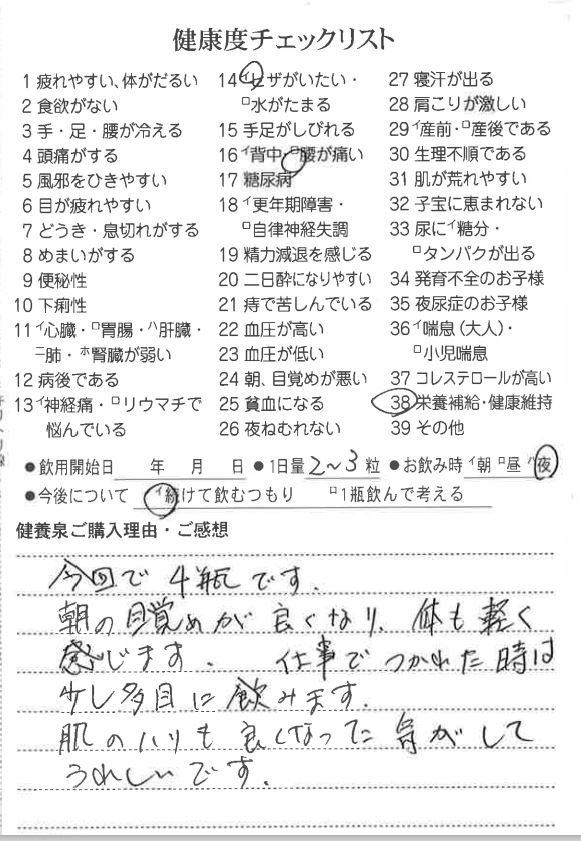 健康度チェックリスト
1 疲れやすい、体がだるい
2 食欲がない
3 手・足・腰が冷える
4 頭痛がする
5 風邪をひきやすい
6 目が疲れやすい
7 どうき・息切れがする
8 めまいがする
9 便秘性
10 下痢性
11 イ心臓・ロ胃腸・ハ肝臓・
ニ肺・ホ腎臓が弱い
12 病後である
13 イ神経痛・ロリウマチで
悩んでいる
14 イヒザがいたい・
ロ水がたまる
15 手足がしびれる
16 イ背中・ロ腰が痛い
17 糖尿病
18 イ更年期障害・
ロ自律神経失調
19 精力減退を感じる
20 二日酔になりやすい
21 痔で苦しんでいる
22 血圧が高い
23 血圧が低い
24 朝、目覚めが悪い
25 貧血になる
26 夜ねむれない
27 寝汗が出る
28 肩こりが激しい
29 イ産前・ロ産後である
30 生理不順である
31 肌が荒れやすい
32 子宝に恵まれない
33 尿にイ糖分・
ロタンパクが出る
34 発育不全のお子様
35 夜尿症のお子様
36 イ喘息(大人)・
ロ小児喘息
37 コレステロールが高い
38 栄養補給・健康維持
39 その他
●飲用開始日 年 月 日 ●1日量 2〜3 粒 ●お飲み時 イ朝 ロ昼 ハ夜
●今後について イ続けて飲むつもり ロ1瓶飲んで考える
健養泉ご購入理由・ご感想
今回で4瓶です.
朝の目覚めが良くなり、体も軽く
感じます. 仕事でつかれた時は
少し多目に飲みます.
肌のハリも良くなった気がして
うれしいです.